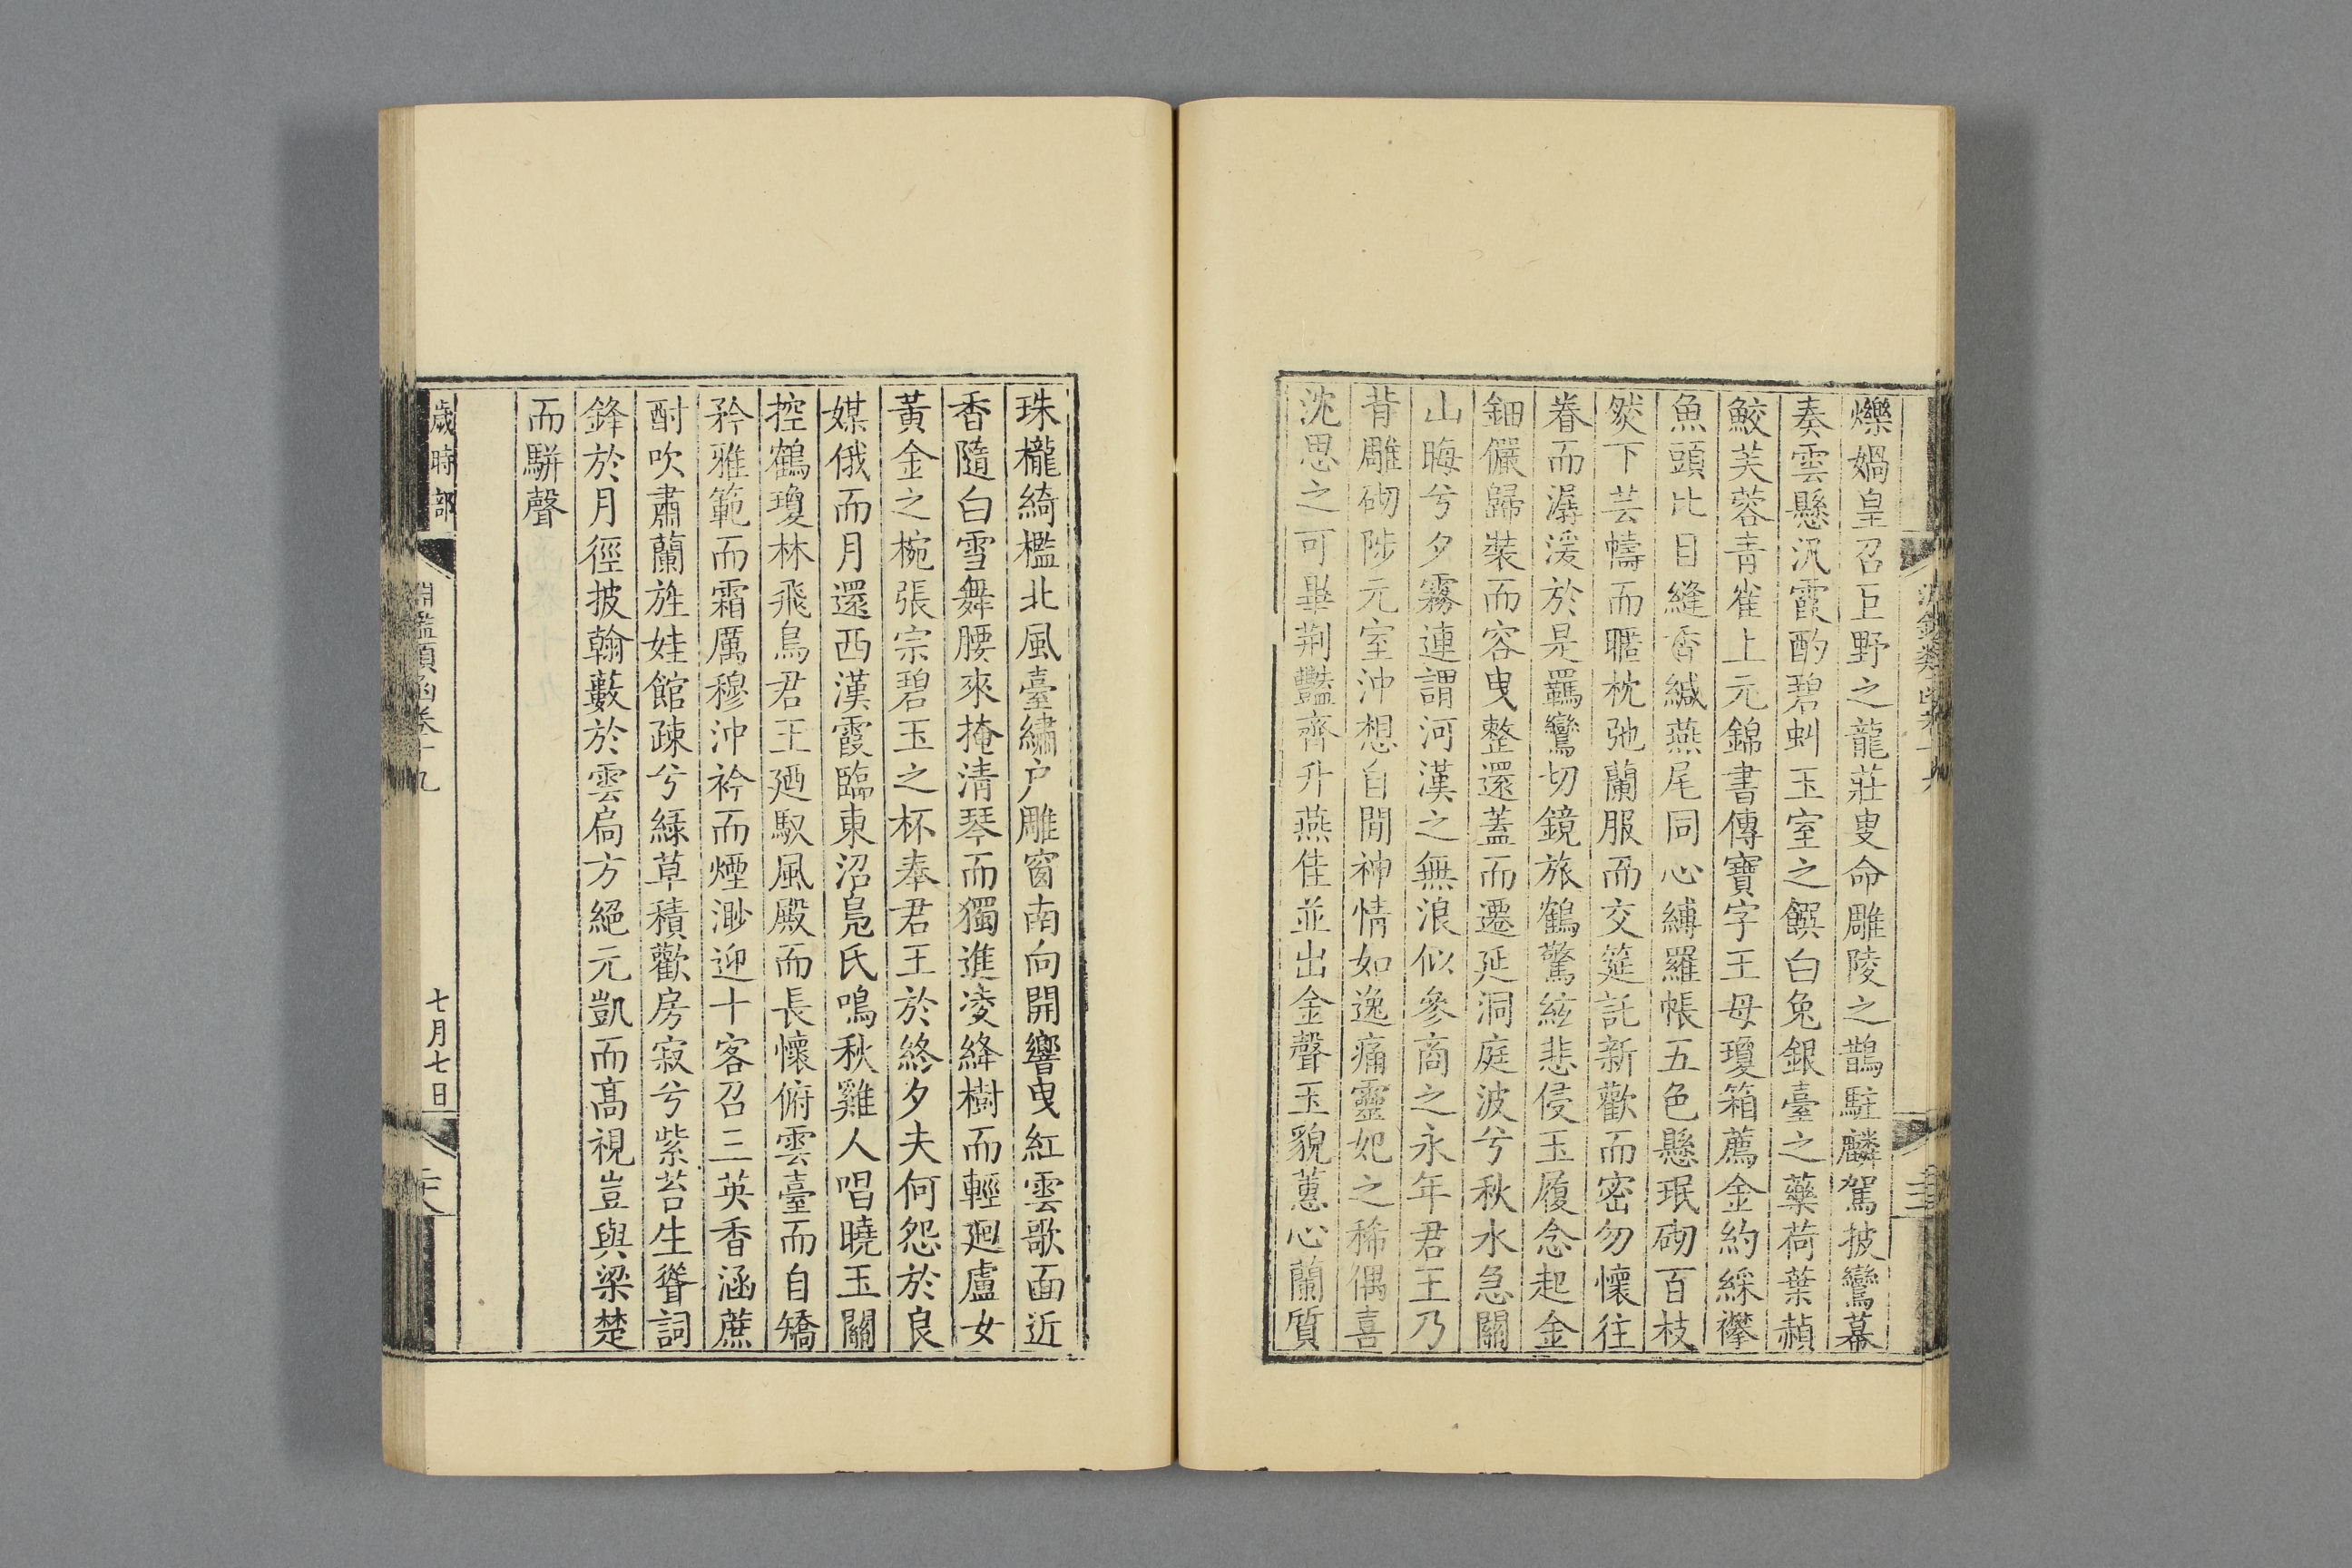 爍媧皇召巨野之龍莊叟命雕陵之鵲駐麟駕披鸞幕
奏雲懸汎霞酌碧虯玉室之饌白兔銀臺之藥荷葉赬
鮫芙蓉青雀上元錦書傳寶字王母瓊箱薦金約綵襻
魚頭比目縫香緘燕尾同心縛羅帳五色懸珉砌百枝
然下芸幬而暱枕弛蘭服而交筵託新歡而密勿懷往
眷而潺湲於是羈鸞切鏡旅鶴驚絃悲侵玉履念起金
鈿儷歸裝而容曳整還蓋而遷延洞庭波兮秋水急關
山晦兮夕霧連謂河漢之無浪似參商之永年君王乃
背雕砌陟元室沖想自閒神情如逸痛靈妃之稀偶喜
沈思之可畢荆豔齊升燕佳並出金聲玉貌蕙心蘭質
珠櫳綺檻北風臺繡户雕窗南向開響曳紅雲歌面近
香隨白雪舞腰來掩清琴而獨進凌絳樹而輕迴盧女
黃金之椀張宗碧玉之杯奉君王於終夕夫何怨於良
媒俄而月還西漢霞臨東沼鳧氏鳴秋雞人唱曉玉關
控鶴瓊林飛鳥君王廼馭風殿而長懷俯雲臺而自矯
矜雅範而霜厲穆沖衿而煙渺迎十客召三英香涵蔗
酎吹肅蘭旌娃館疎兮綠草積歡房寂兮紫苔生聳詞
鋒於月徑披翰藪於雲扃方絕元凱而高視豈與梁楚
而駢聲
歲時部
淵鑑類函卷十九
七月七日